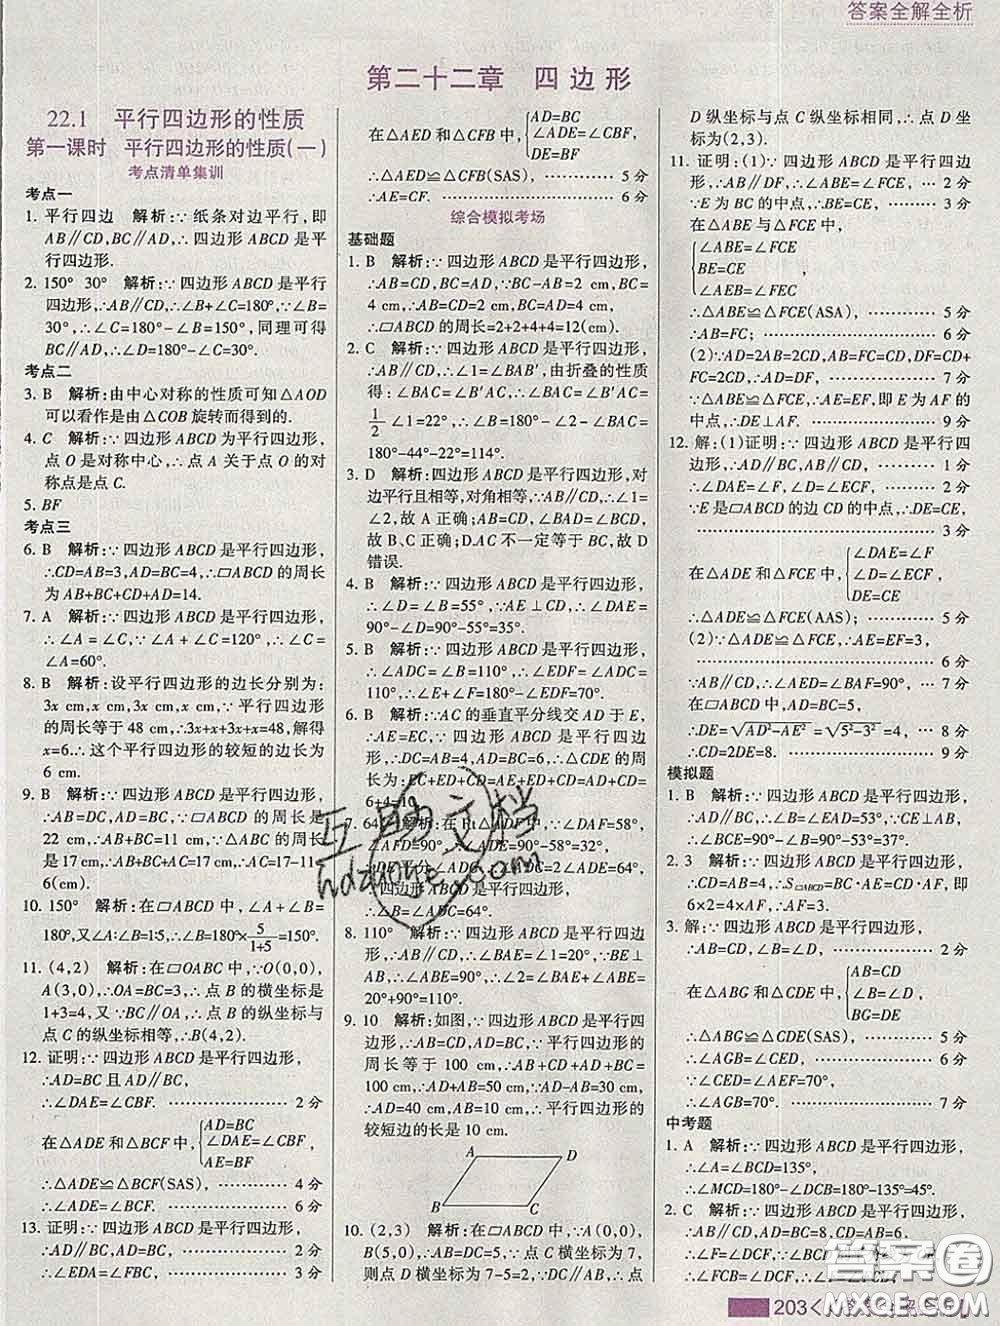 答案全解全析
第二十二章 四边形
22.1 平行四边形的性质
第一课时 平行四边形的性质(一)
考点清单集训
考点一
1. 平行四边 解析:∵纸条对边平行,即
AB∥CD,BC∥AD,∴四边形ABCD是平
行四边形.
2. 150° 30° 解析:∵四边形ABCD是平行
四边形,∴AB∥CD,∴∠B+∠C=180°,∵∠B=
30°,∴∠C=180°-∠B=150°,同理可得
BC∥AD,∴∠D=180°-∠C=30°.
考点二
3. B 解析:由中心对称的性质可知△AOD
可以看作是由△COB旋转而得到的.
4. C 解析:∵四边形ABCD为平行四边形,
点O是对称中心,∴点A关于点O的对
称点是点C.
5. BF
考点三
6. B 解析:∵四边形ABCD是平行四边形,
∴CD=AB=3,AD=BC=4,∴▱ABCD的周长
为AB+BC+CD+AD=14.
7. A 解析:∵四边形ABCD是平行四边形,
∴∠A=∠C,∵∠A+∠C=120°,∴∠C=
∠A=60°.
8. B 解析:设平行四边形的边长分别为:
3x cm,x cm,3x cm,x cm,∵平行四边形
的周长等于48 cm,∴3x+x+3x+x=48,解得
x=6.∴这个平行四边形的较短的边长为
6 cm.
9. B 解析:∵四边形ABCD是平行四边形,
∴AB=DC,AD=BC,∵▱ABCD的周长是
22 cm,∴AB+BC=11 cm,∵△ABC的周长
是17 cm,∴AB+BC+AC=17 cm,∴AC=17-11=
6(cm).
10. 150° 解析:在▱ABCD中,∠A+∠B=
180°,又∠A:∠B=1:5,∴∠B=180°×5/(1+5)=150°.
11. (4,2) 解析:在▱OABC中,∵O(0,0),
A(3,0),∴OA=BC=3,∴点B的横坐标是
1+3=4,又∵BC∥OA,∴点B的纵坐标与
点C的纵坐标相等,∴B(4,2).
12. 证明:∵四边形ABCD是平行四边形,
∴AD=BC且AD∥BC,
∴∠DAE=∠CBF. ………… 2分
在△ADE和△BCF中, { AD=BC
∠DAE=∠CBF,
AE=BF
∴△ADE≌△BCF(SAS), ………… 4分
∴∠AED=∠BFC. ………… 6分
13. 证明:∵四边形ABCD是平行四边形,
∴AD∥BC,AD=BC, ………… 2分
∴∠EDA=∠FBC, ………… 3分
在△AED和△CFB中, { AD=BC
∠ADE=∠CBF,
DE=BF
∴△AED≌△CFB(SAS), ………… 5分
∴AE=CF. ………… 6分
综合模拟考场
基础题
1. B 解析:∵四边形ABCD是平行四边形,
∴AB=CD,BC=AD,∵BC-AB=2 cm,BC=
4 cm,∴AB=CD=2 cm,BC=AD=4 cm,
∴▱ABCD的周长=2+2+4+4=12(cm).
2. C 解析:∵四边形ABCD是平行四边形,
∴AB∥CD,∴∠1=∠BAB′,由折叠的性质
得:∠BAC=∠B′AC,∴∠BAC=∠B′AC=
1/2∠1=22°,∴∠B=180°-∠2-∠BAC=
180°-44°-22°=114°.
3. D 解析:四边形ABCD是平行四边形,对
边平行且相等,对角相等,∴AB∥CD,∴∠1=
∠2,故A正确;∴∠BAD=∠BCD,AB=CD,
故B、C正确;D.AC不一定等于BC,故D
错误.
4. B 解析:∵四边形ABCD是平行四边形,
∴∠D=∠B=55°,∵AE⊥CD,∴∠DAE=
90°-∠D=90°-55°=35°.
5. B 解析:∵四边形ABCD是平行四边形,
∴∠ADC=∠B=110°,∴∠EDF=∠ADC=
110°,∴∠E+∠F=180°-∠EDF=70°.
6. B 解析:∵AC的垂直平分线交AD于E,
∴AE=EC,∵四边形ABCD是平行四边形,
∴DC=AB=4,AD=BC=6,∴△CDE的周长
为:EC+ED+CD=AE+ED+CD=AD+CD=
6+4=10.
7. 64° 解析:在Rt△ADF中,∵∠DAF=58°,
∠AFD=90°,∴∠ADF=90°-58°=32°,
∵DE平分∠ADC,∴∠ADC=2∠ADE=64°,
∵四边形ABCD是平行四边形,
∴∠B=∠ADC=64°.
8. 110° 解析:∵四边形ABCD是平行四边
形,∴AB∥CD,∴∠ABE=∠1=20°,∵BE⊥
AB,∴∠ABE=90°,∴∠2=∠BAE+∠ABE=
20°+90°=110°.
9. 10 解析:如图,∵四边形ABCD是平行四
边形,∴AB=CD,AD=BC,∵平行四边形的
周长等于100 cm,∴AB+CD+AD+BC=
100 cm,∴AD+AB=50 cm,∵AD-AB=30 cm,
∴AD=40 cm,AB=10 cm,∴平行四边形的
较短边的长是10 cm.
A D
B C
10. (2,3) 解析:在▱ABCD中,∵A(0,0),
B(5,0),∴AB=DC=5,∵点C横坐标为7,
则点D横坐标为7-5=2,∵DC∥AB,∴点
D纵坐标与点C纵坐标相同,∴点D坐
标为(2,3).
11. 证明:(1)∵四边形ABCD是平行四边形,
∴AB∥DF,∴∠ABE=∠FCE, ………… 2分
∵E为BC的中点,∴BE=CE, ………… 3分
在△ABE与△FCE中,
{ ∠ABE=∠FCE
BE=CE ,
∠AEB=∠FEC
∴△ABE≌△FCE(ASA), ………… 5分
∴AB=FC; ………… 6分
(2)∵AD=2AB=2CD,AB=FC=CD,DF=CD+
FC=2CD,∴AD=DF, ………… 7分
∵△ABE≌△FCE,∴AE=EF,即E为AF的
中点,∴DE⊥AF. ………… 9分
12. 解:(1)证明:∵四边形ABCD是平行四
边形,∴AD∥BC,AB∥CD, ………… 1分
∴∠DAE=∠F,∠D=∠ECF, ………… 2分
∵E是▱ABCD的边CD的中点,∴DE=CE,
………… 3分
在△ADE和△FCE中, { ∠DAE=∠F
∠D=∠ECF,
DE=CE
∴△ADE≌△FCE(AAS); ………… 5分
(2)∵△ADE≌△FCE,∴AE=EF=3,
………… 6分
∵AB∥CD,∴∠AED=∠BAF=90°, … 7分
在▱ABCD中,AD=BC=5,
∴DE=√(AD²-AE²)=√(5²-3²)=4, … 8分
∴CD=2DE=8. ………… 9分
模拟题
1. B 解析:∵四边形ABCD是平行四边形,
∴AD∥BC,∴∠B=180°-∠A,∵CE⊥AB,
∴∠BCE=90°-∠B=∠A-90°.
2. 3 解析:∵四边形ABCD是平行四边形,
∴CD=AB=4,∴S▱ABCD=BC·AE=CD·AF,即
6×2=4×AF,∴AF=3.
3. 解:∵四边形ABCD是平行四边形,
∴AB=CD,∠B=∠D, ………… 2分
在△ABG和△CDE中, { AB=CD
∠B=∠D,
BG=DE
∴△ABG≌△CDE(SAS), ………… 5分
∴∠AGB=∠CED, ………… 6分
∵∠CED=∠AEF=70°,
∴∠AGB=70°. ………… 7分
中考题
1. A 解析:∵四边形ABCD是平行四边形,
∴∠A=∠BCD=135°,
∴∠MCD=180°-∠DCB=180°-135°=45°.
2. C 解析:∵四边形ABCD是平行四边形,
∴AB∥CD,AD=BC=8,CD=AB=6,
∴∠F=∠DCF,∵
∴∠FCB=∠DCF,
203
互助文档
hdzuoye.com
答案圈
MXQE.COM